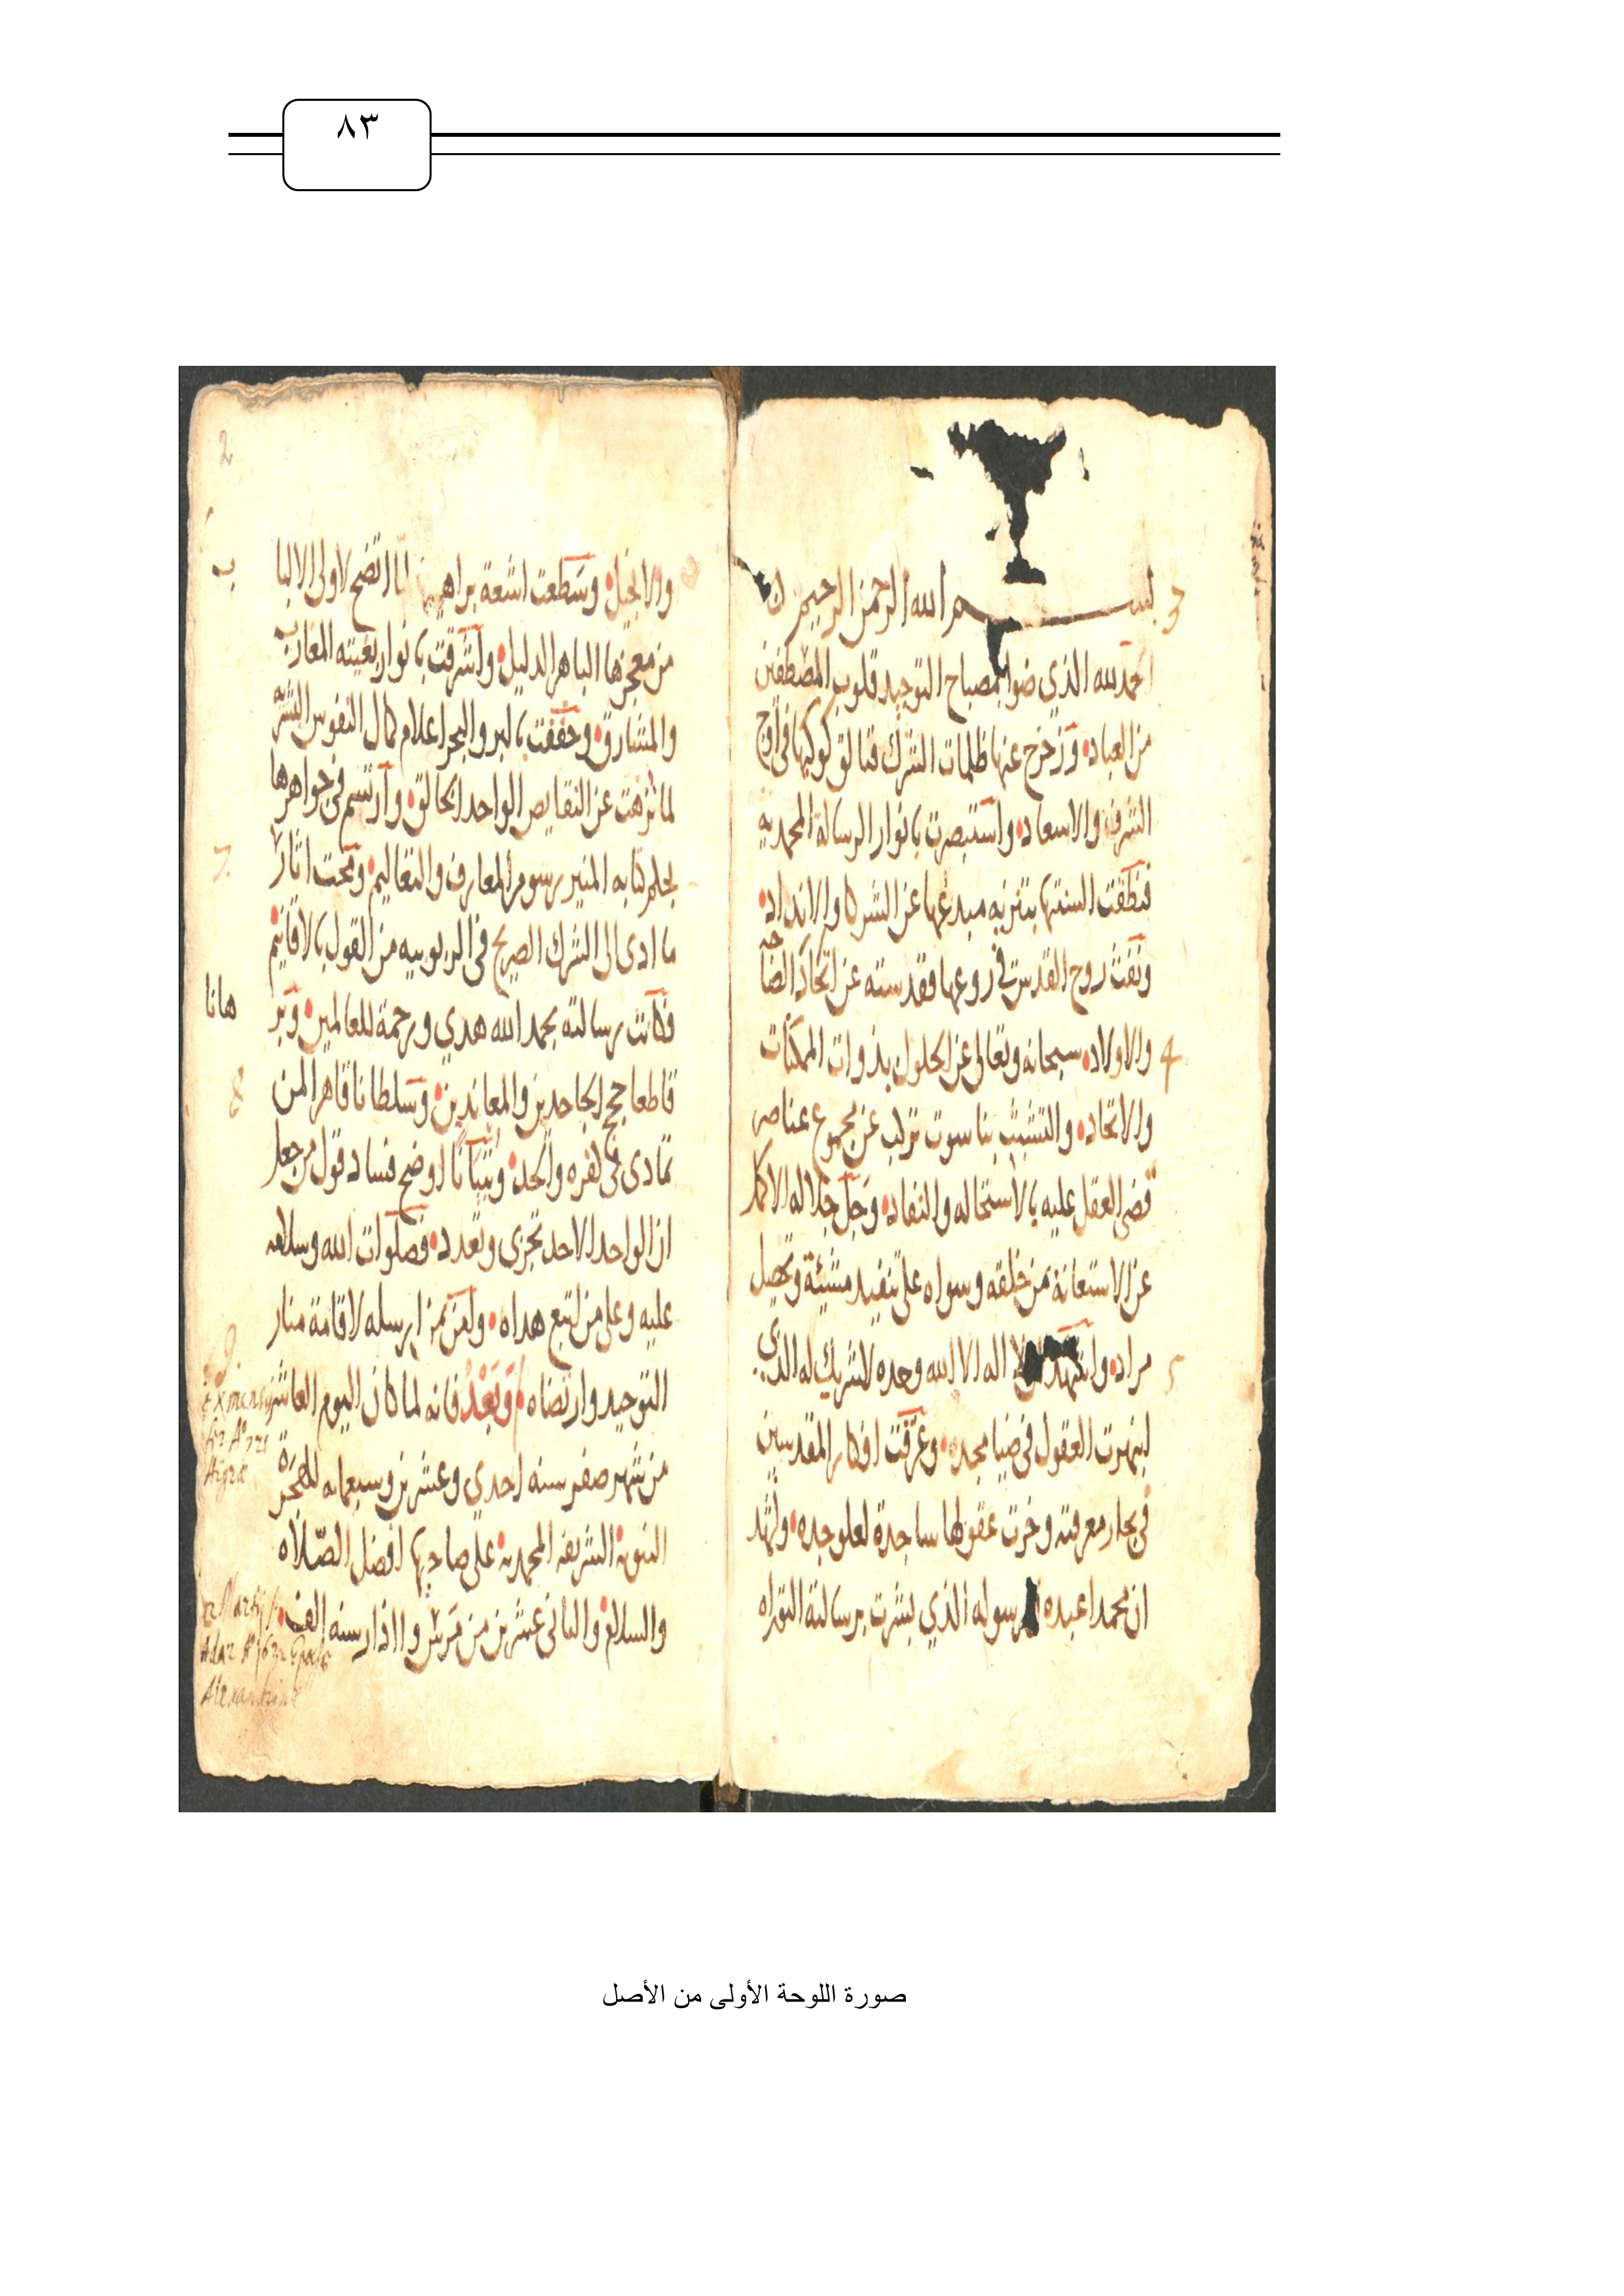 ٨٣
بسم الله الرحمن الرحيم
الحمد لله الذي ضوا بمصباح التوحيد قلوب المصطفين
من العباد وزحزح عنها ظلمات الشرك فتالق كوكبها في اوج
الشرف والاسعاد واستبصرت بانوار الرسالة المحمديه
فنطقت السنتها بتنزيه مبدعها عن الشركا والانداد
ونفث روح القدس في روعها فقدسته عن اتخاذ الصاحبه
والاولاد سبحانه وتعالى عن الحلول بذوات الممكنات
والاتحاد والتشبث بناسوت تركب عن مجموع عناصر
قضى العقل عليه بالاستحاله والنفاد وجل جلاله الاكمل
عن الاستعانة من خلقه وسواه على تنفيذ مشيئة وتحصيل
مراد واشهد لا اله الا الله وحده لا شريك له الذي
انبهرت العقول في ضيا مجده وغرقت افكار المقدسين
في بحار معرفته وخرت عقولها ساجدة لعلو جده واشهد
ان محمدا عبده رسوله الذي بشرت برسالته التوراه
2
3
4
5
والانجيل وسطعت اشعة براهي لما اتضح لاولي الالباب
من معجزها الباهر الدليل واشرقت بانوار بعثته المغارب
والمشارق وخفقت بالبر والبحر اعلام كمال النفوس البشريه
لما نزهت عن النقايص الواحد الخالق وارتسم في جواهرها
بحلم كتابه المنير رسوم المعارف والتعاليم ومحت اثار
ما ادى الى الشرك الصريح في الربوبيه من القول بالاقانيم
فكانت رسالته بحمد الله هدي ورحمة للعالمين وبرهانا
قاطعا حجج الجاحدين والمعاندين وسلطانا قاهرا لمن
تمادى في كفره والحد وتبيانا اوضح فساد قول من جعل
ان الواحد الاحد تجزى وتعدد فصلوات الله وسلامه
عليه وعلى من اتبع هداه ولعن من ارسله لاقامة منار
التوحيد وارتضاه وَبَعْدُ فانه لما كان اليوم العاشر
من شهر صفر سنه احدي وعشرين وسبعمايه للهجرة
النبوية الشريفة المحمدية على صاحبها افضل الصلاه
والسلام والثاني عشرين من مرتس واذار سنه الف
7.
8
9.
Ex mensis
Aº 721
Higræ
Martij
Adar Aº 1632 Epochæ
Alexandrinæ
صورة اللوحة الأولى من الأصل